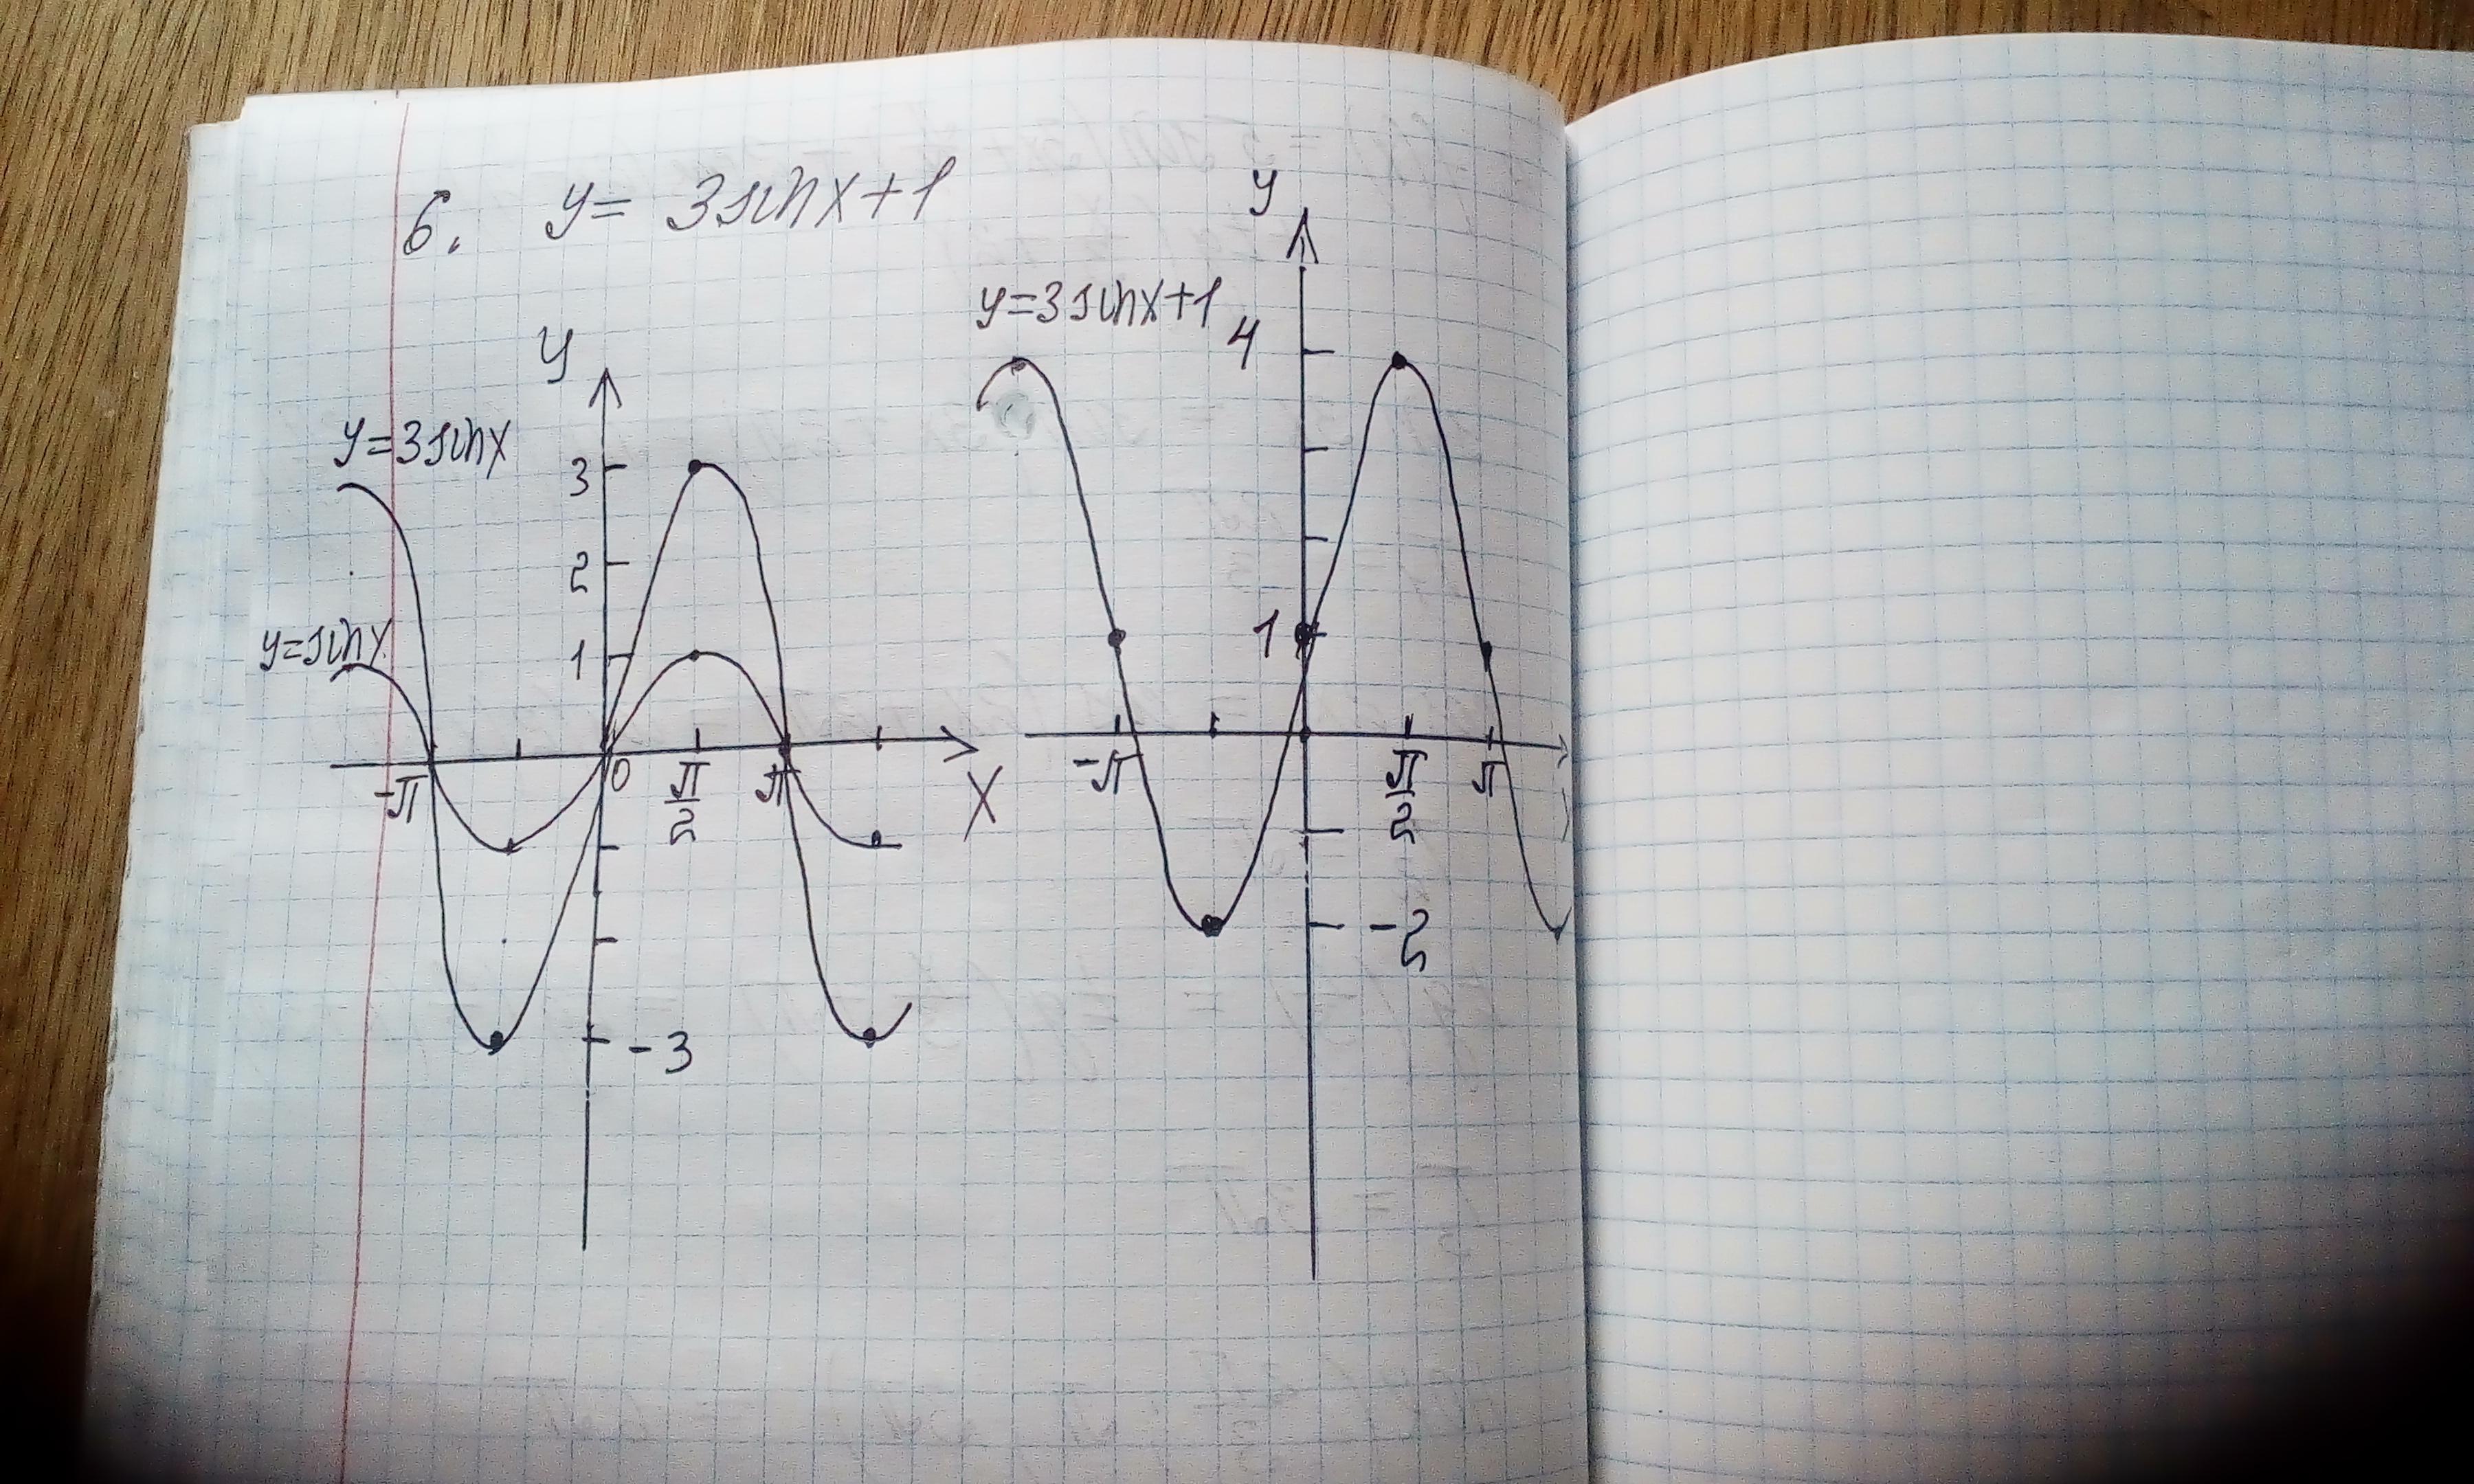 6. y = 3sinx+1
y
y=3sinx
3
2
y=sinx
1
-π 0 π/2 π x
-3
y
y=3sinx+1
4
1
-π π/2 π
-2